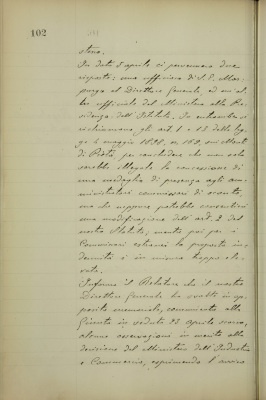 102
stera.
In data 5 aprile ci pervennero due
risposte: una ufficiosa di S. E. Mor-
purgo al Direttore Generale, ed un'al-
tra ufficiale del Ministero alla Pre-
sidenza dell'Istituto. In entrambe si
richiamano gli art. 1 e 13 della leg-
ge 4 maggio 1898, n. 169, sui Monti
di Pietà, per concludere che non solo
sarebbe illegale la concessione di
una medaglia di presenza agli am-
ministratori commissari di sconto,
ma che neppure potrebbe consentirsi
una modificazione dell'art. 2 del
nostro Statuto, mentre poi per i
Commissari estranei la proposta in-
dennità è in misura troppo ele-
vata.
Informa il Relatore che il nostro
Direttore Generale ha svolto in ap-
posito memoriale, comunicato alla
Giunta in seduta 13 aprile scorso,
alcune osservazioni in merito alla
decisione del Ministero dell'Industria
e Commercio, esprimendo l'avviso